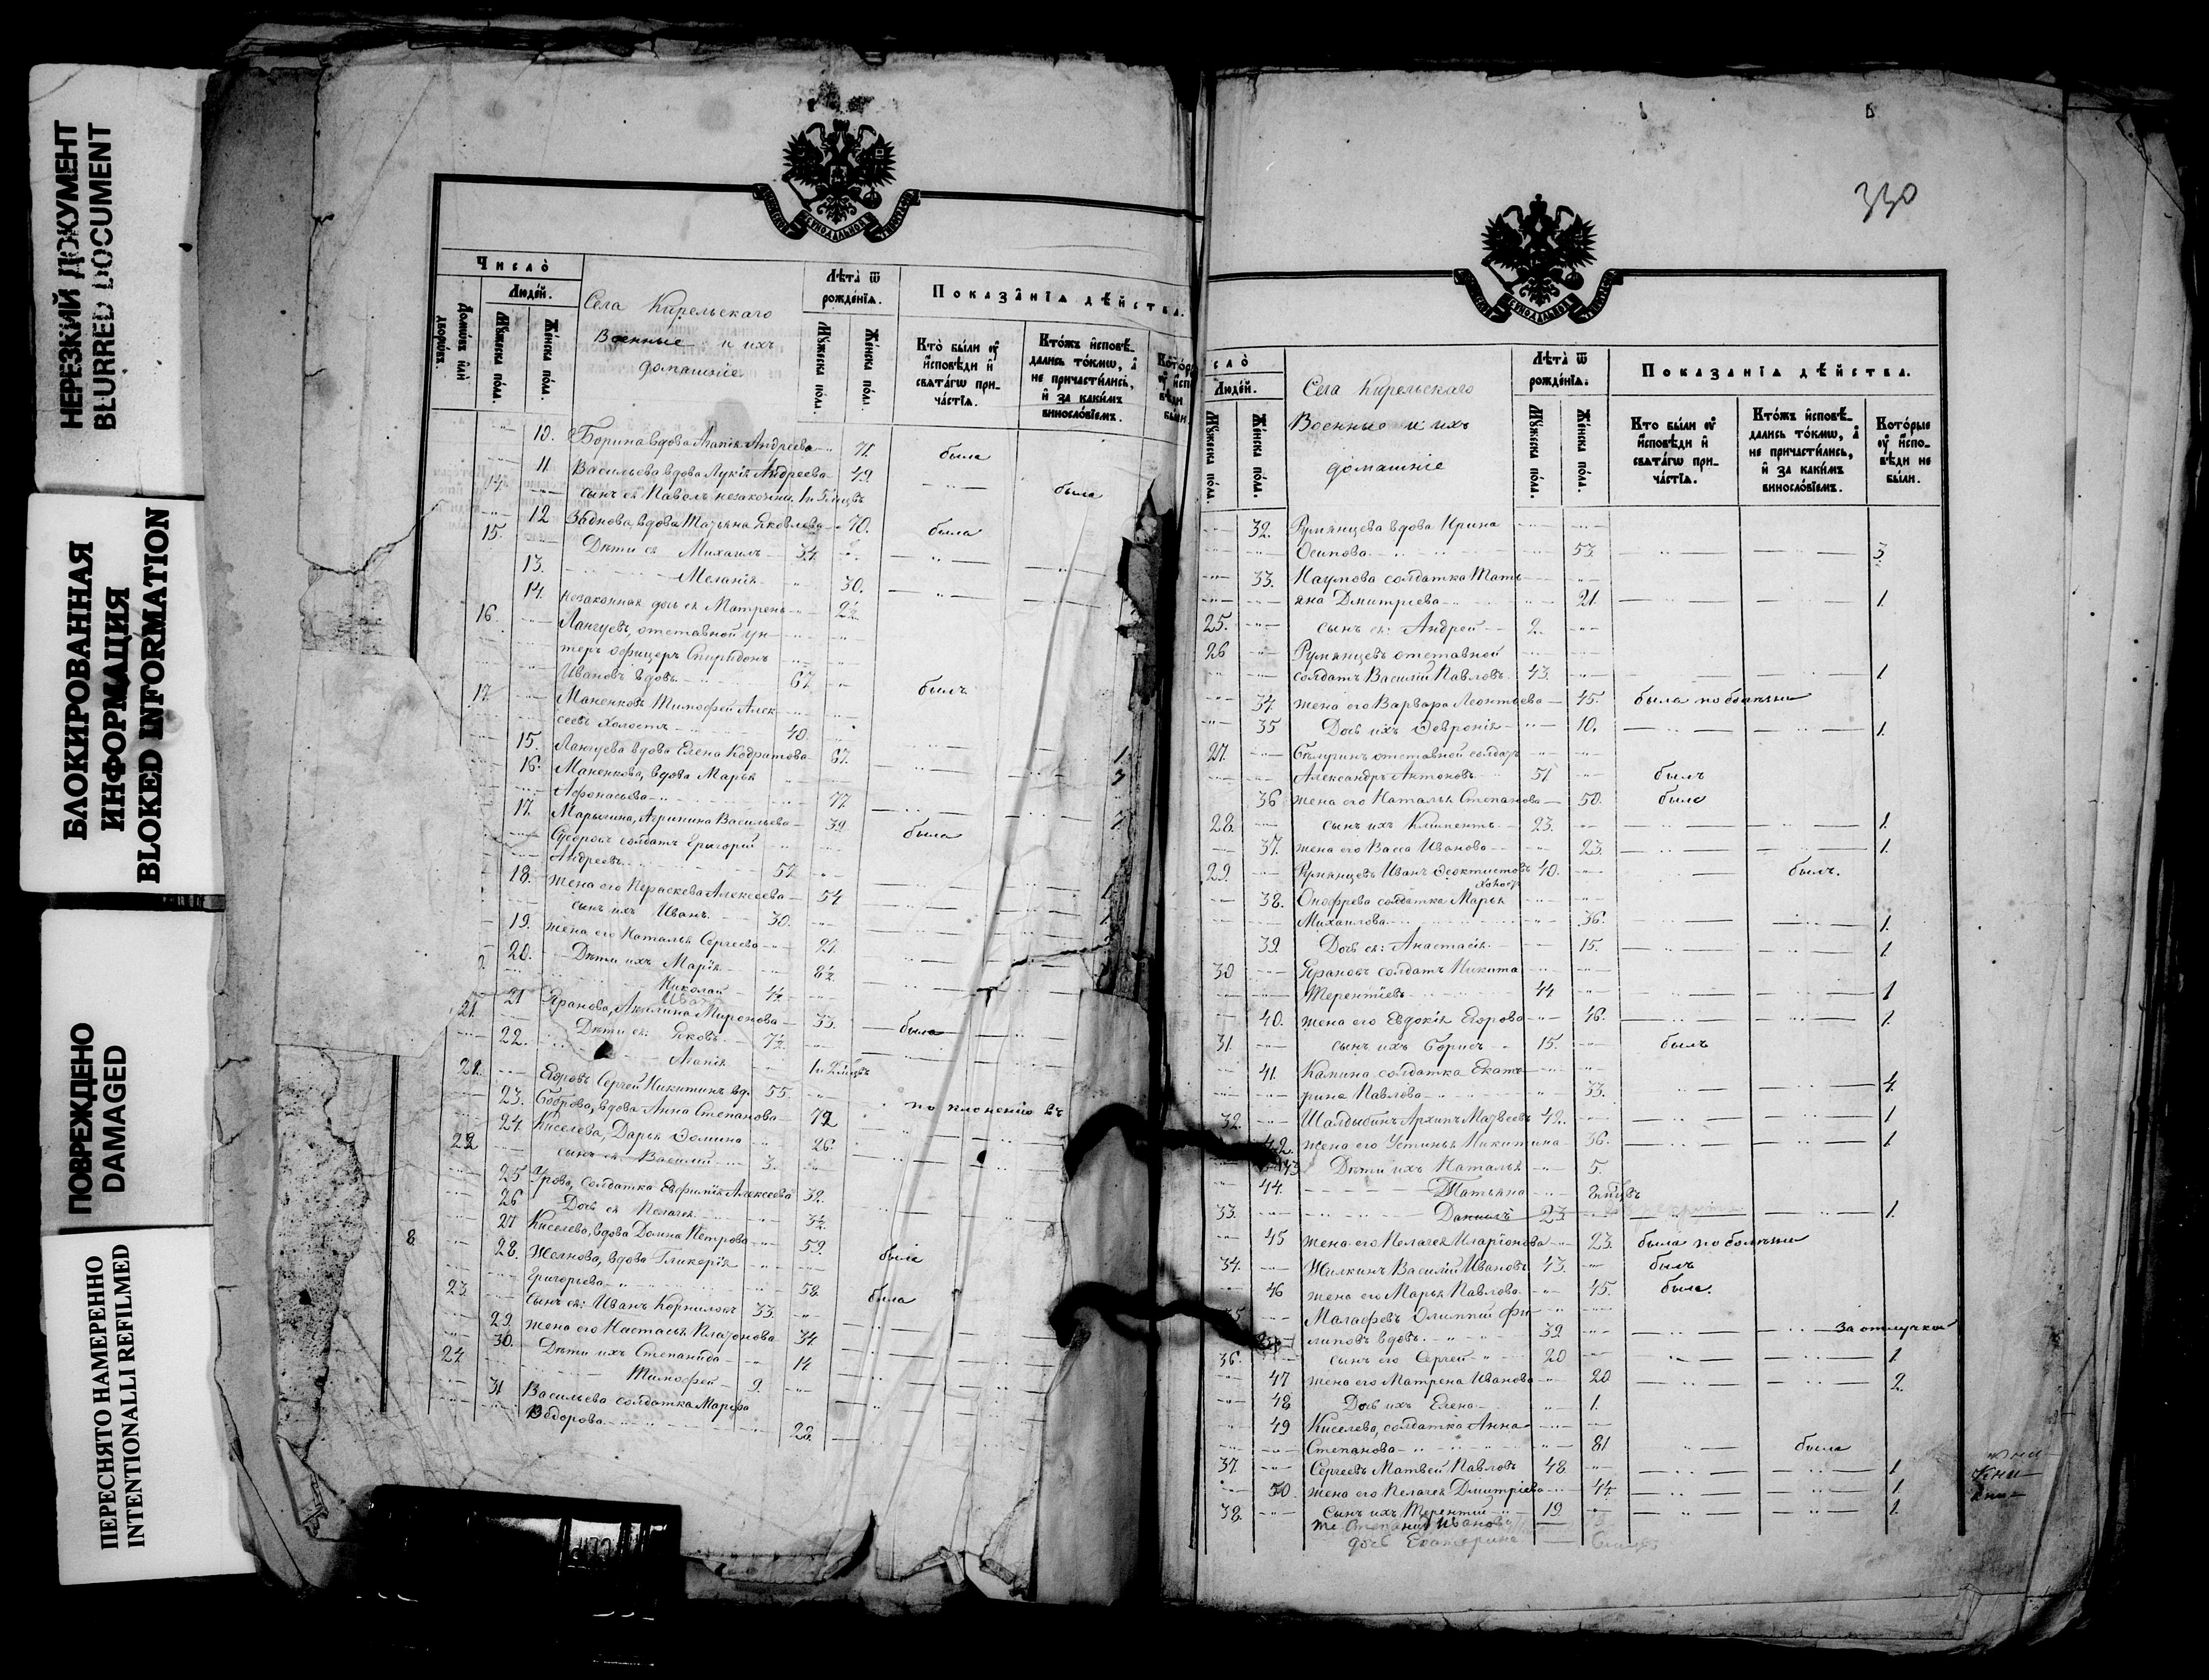 НЕРЕЗКИЙ ДОКУМЕНТ
BLURRED DOCUMENT
БЛОКИРОВАННАЯ
ИНФОРМАЦИЯ
BLOKED INFORMATION
ПОВРЕЖДЕНО
DAMAGED
ПЕРЕСНЯТО НАМЕРЕННО
INTENTIONALLI REFILMED
Число̀
Люде́й.
Домѡ́въ и҆лѝ дворѡ́въ.
Мꙋ́жеска по́ла.
Же́нска по́ла.
Села Кирельскаго
Военные и ихъ
домашніе
Лѣ́та ѿ рожде́нїѧ.
Мꙋ́жеска по́ла.
Же́нска по́ла.
Показа̑нїѧ дѣ́йства.
Кто̀ бы́ли ᲂу҆ и҆сповѣ́ди и҆ свѧта́гѡ при-
ча́стїѧ.
Кто́жъ и҆сповѣ́-
дались то́кмѡ, а҆
не причасти́лись,
и҆ за каки́мъ
виносло́вїемъ.
10. Борина вдова Агапія Андреева 71 была
11. Васильева вдова Лукія Андреева 49 была
14. сынъ ея Павелъ незаконн. 1 и 5 мцвъ
12 Заднова, вдова Татьяна Яковлева 70. была
15. Дѣти ея Михаилъ 34
13. Меланія 30.
14. незаконная дочь ея Матрена 2½
16. Лангуевъ, отставной ун-
теръ офицеръ Спиридонъ
Ивановъ вдовъ 67 былъ
17. Маненковъ Тимофей Алек-
сеевъ холостъ 40
15. Лангуева вдова Елена Кодратова 67. 1
16. Маненкова, вдова Марья 3
Афонасьева 77
17. Марычина, Агрипина Васильева 39 была
Суворовъ солдатъ Григорій
Андреевъ 57
18. жена его Пераскева Алексеева 54
сынъ ихъ Иванъ. 30.
19. жена его Наталья Сергеева 27
20. Дѣти ихъ Марія 8½
Николай 4½
21 Яранова, Акилина Миронова 33. была
21. Дѣти ея: Яковъ 7½
22. Агапія 1 и 2 мцвъ
21. Егоровъ Сергей Никитинъ вд. 55
23. Боброва, вдова Анна Степанова 72
24. Киселева, Дарья Фомина 26
22 сынъ ея Василій 3.
25 солдатка Евфимія Алексеева 32
26 Дочь ея Пелагея 3½
27 Киселева, вдова Домна Петрова 59. была
8. 28. вдова Гликерія
Григорьева 58 была
23 Сынъ ея: Иванъ Корниловъ 33.
29. жена его Настасья Платонова 34.
30. Дѣти ихъ Степанида 14
24. Тимофей 9.
31 Васильева солдатка Марфа
Ѳедорова 28.
330
Люде́й.
Мꙋ́жеска по́ла.
Же́нска по́ла.
Села Кирельскаго
Военные и ихъ
домашніе
Лѣ́та ѿ рожде́нїѧ.
Мꙋ́жеска по́ла.
Же́нска по́ла.
Показа̑нїѧ дѣ́йства.
Кто бы́ли ᲂу҆ и҆сповѣ́ди и҆ свѧта́гѡ при-
ча́стїѧ.
Кто́жъ и҆сповѣ́-
дались то́кмѡ, а҆
не причасти́лись,
и҆ за каки́мъ
виносло́вїемъ.
Кото́рые ᲂу҆ и҆спо-
вѣ́ди не бы́ли.
32. Румянцева вдова Ирина
Осипова 53. 3.
33. Наумова солдатка Тать-
яна Дмитріева 21. 1.
25. сынъ ея: Андрей 2.
26 Румянцевъ отставной
солдатъ Василій Павловъ. 43. 1
34. жена его Варвара Леонтьева 45. была по болѣзни
35 Дочь ихъ Февронія 10. 1.
27. отставной солдатъ
Александръ Антоновъ 51 былъ
36 жена его Наталья Степанова 50. была
28. сынъ ихъ Климентъ 23. 1.
37. жена его Васса Иванова 23. 1.
29. Румянцевъ Иванъ Феоктистовъ 40. былъ.
холостъ
38. Онофрева солдатка Марья
Михаилова 36. 1.
39. Дочь ея: Анастасія 15. 1
30 Ярановъ солдатъ Никита
Терентіевъ 44 1
40. жена его Евдокія Егорова 46. 1.
31. сынъ ихъ Борисъ 15. былъ
41. Камина солдатка Екате-
рина Павлова 33. 4.
32. Шалдыбинъ Архипъ Матвеевъ 42. 1
42. жена его Устинья Никитина 36. 1
43 Дѣти ихъ Наталья 5.
44. Татьяна мцвъ
33. Даниилъ 23 1.
45 жена его Пелагея Иларіонова 23. была по болѣзни
34. Жилкинъ Василій Ивановъ 43. былъ
46 жена его Марья Павлова. 45. была.
35 Малафевъ Олимпій Фи-
липовъ вдовъ. 39 за отлучкой
36. сынъ его Сергей 20 1.
47 жена его Матрена Иванова 20 2.
48 Дочь ихъ Елена 1.
49 Киселева, солдатка Анна
Степанова 81 была
37. Сергеевъ Матвей Павловъ 48. 1.
50. жена его Пелагея Дмитріева 44. 1
38. Сынъ ихъ Терентій 19 1.
же Степанида Иванова
дочь Екатерина